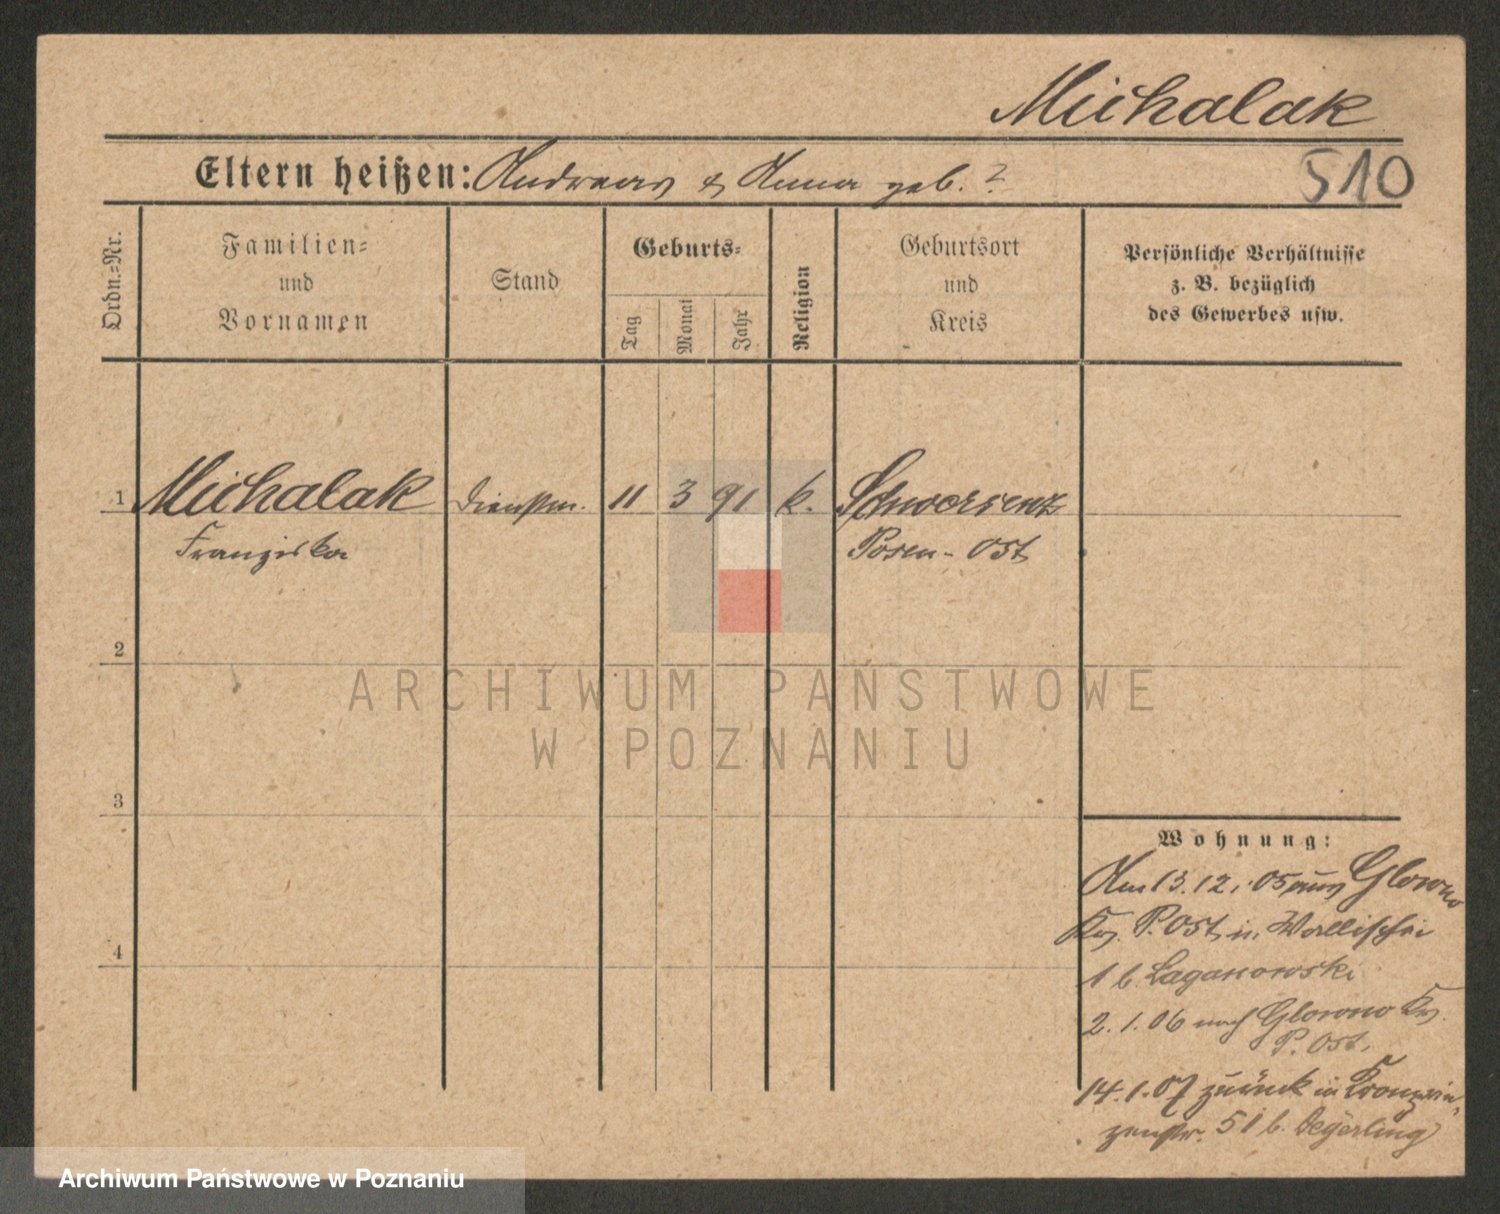 Michalak
Eltern heißen: Andreas & Anna geb. ?
510
Ordn.=Nr.
Familien=
und
Vornamen
Stand
Geburts=
Tag
Monat
Jahr
Religion
Geburtsort
und
Kreis
Persönliche Verhältnisse
z. B. bezüglich
des Gewerbes usw.
1 Michalak Dienstm. 11 3 91 k. Schwersenz
Franziska Posen-Ost
2
3
4
Wohnung:
Am 13.12.05 aus Glowno
Krs. P. Ost in Wallischei
1 b. Laganowski
2.1.06 nach Glowno Krs.
P. Ost.
14.1.07 zurück in Kronprin
zenstr. 51 b. Degerling
ARCHIWUM PAŃSTWOWE
W POZNANIU
Archiwum Państwowe w Poznaniu